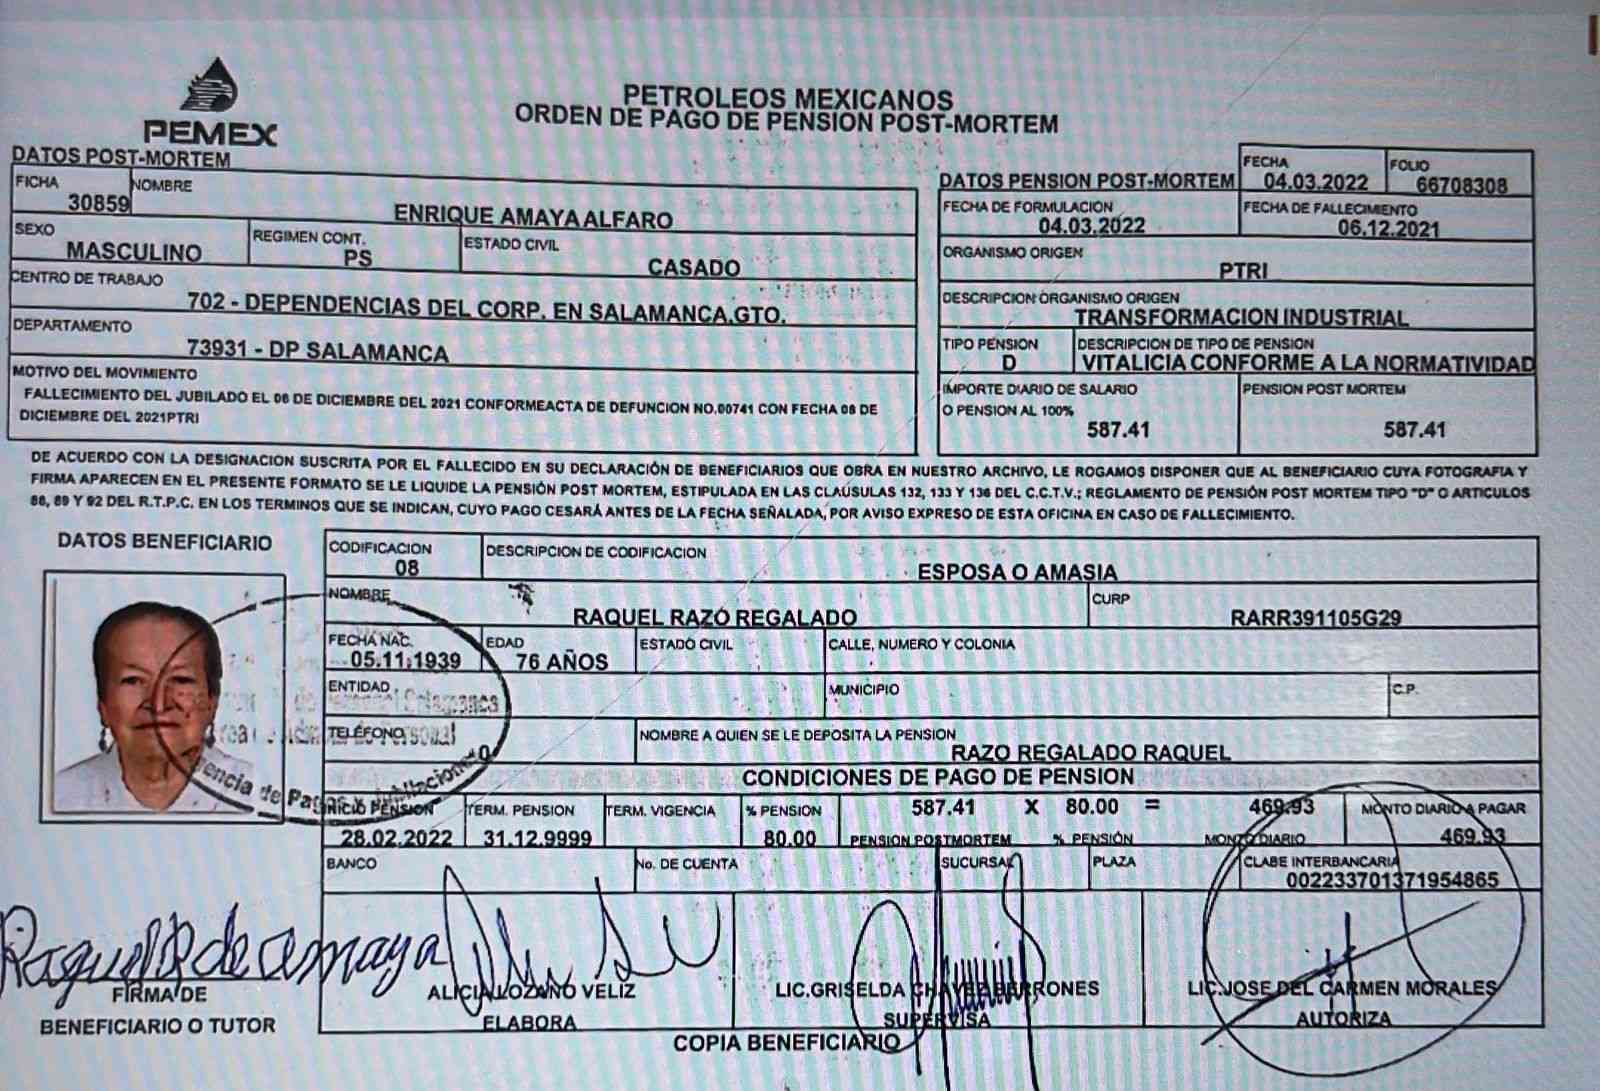 PEMEX
PETROLEOS MEXICANOS
ORDEN DE PAGO DE PENSION POST-MORTEM
DATOS POST-MORTEM
FICHA
30859
NOMBRE
ENRIQUE AMAYA ALFARO
SEXO
MASCULINO
REGIMEN CONT.
PS
ESTADO CIVIL
CASADO
CENTRO DE TRABAJO
702 - DEPENDENCIAS DEL CORP. EN SALAMANCA,GTO.
DEPARTAMENTO
73931 - DP SALAMANCA
MOTIVO DEL MOVIMIENTO
FALLECIMIENTO DEL JUBILADO EL 06 DE DICIEMBRE DEL 2021 CONFORMEACTA DE DEFUNCION NO.00741 CON FECHA 08 DE
DICIEMBRE DEL 2021PTRI
DATOS PENSION POST-MORTEM
FECHA
04.03.2022
FOLIO
66708308
FECHA DE FORMULACION
04.03.2022
FECHA DE FALLECIMIENTO
06.12.2021
ORGANISMO ORIGEN
PTRI
DESCRIPCION ORGANISMO ORIGEN
TRANSFORMACION INDUSTRIAL
TIPO PENSION
D
DESCRIPCION DE TIPO DE PENSION
VITALICIA CONFORME A LA NORMATIVIDAD
IMPORTE DIARIO DE SALARIO
O PENSION AL 100%
587.41
PENSION POST MORTEM
587.41
DE ACUERDO CON LA DESIGNACION SUSCRITA POR EL FALLECIDO EN SU DECLARACIÓN DE BENEFICIARIOS QUE OBRA EN NUESTRO ARCHIVO, LE ROGAMOS DISPONER QUE AL BENEFICIARIO CUYA FOTOGRAFIA Y
FIRMA APARECEN EN EL PRESENTE FORMATO SE LE LIQUIDE LA PENSIÓN POST MORTEM, ESTIPULADA EN LAS CLAUSULAS 132, 133 Y 136 DEL C.C.T.V.; REGLAMENTO DE PENSIÓN POST MORTEM TIPO "D" O ARTICULOS
88, 89 Y 92 DEL R.T.P.C. EN LOS TERMINOS QUE SE INDICAN, CUYO PAGO CESARÁ ANTES DE LA FECHA SEÑALADA, POR AVISO EXPRESO DE ESTA OFICINA EN CASO DE FALLECIMIENTO.
DATOS BENEFICIARIO
CODIFICACION
08
DESCRIPCION DE CODIFICACION
ESPOSA O AMASIA
NOMBRE
RAQUEL RAZO REGALADO
CURP
RARR391105G29
FECHA NAC.
05.11.1939
EDAD
76 AÑOS
ESTADO CIVIL
CALLE, NUMERO Y COLONIA
ENTIDAD
MUNICIPIO
C.P.
TELÉFONO
Personal
NOMBRE A QUIEN SE LE DEPOSITA LA PENSION
RAZO REGALADO RAQUEL
CONDICIONES DE PAGO DE PENSION
INICIO PENSION
28.02.2022
TERM. PENSION
31.12.9999
TERM. VIGENCIA
% PENSION
80.00
587.41 X 80.00 = 469.93
PENSION POSTMORTEM % PENSIÓN MONTO DIARIO
MONTO DIARIO A PAGAR
469.93
BANCO
No. DE CUENTA
SUCURSAL
PLAZA
CLABE INTERBANCARIA
002233701371954865
Raquel R de amaya
FIRMA DE
BENEFICIARIO O TUTOR
ALICIA LOZANO VELIZ
ELABORA
LIC.GRISELDA CHAVEZ BERRONES
SUPERVISA
LIC.JOSE DEL CARMEN MORALES
AUTORIZA
COPIA BENEFICIARIO